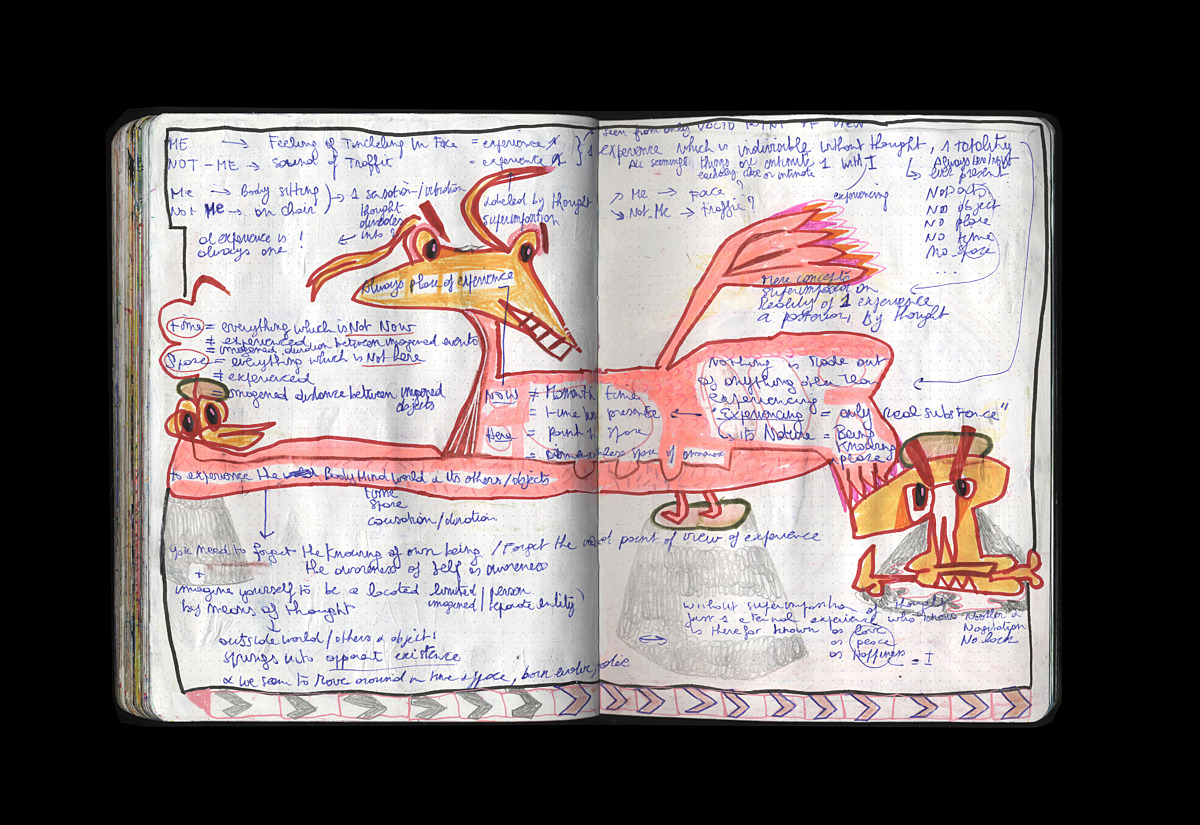 ME → Feeling of Tinckeling in Face = experience
NOT-ME → Sound of Traffic = experience
Me → Body sitting
Not Me → on chair
→ 1 sensation/vibration
thought
divides
into ?
labeled by thought
superimposition
experience is !
always one
Always place of experience
time = everything which is Not Now
≠ experienced
= imagened duration between imagened events
Space = everything which is Not here
≠ experienced
imagened distance between imagened
objects
NOW ≠ Moment in time
= time presence
Here = point in space
= dimensionless space of awareness
to experience the Body Mind world & its others/objects
time
space
causation/duration
you need to forget the knowing of own being / Forget the point of view of experience
the awareness of self as awareness
+
imagine yourself to be a located limited / person
by means of thought imagined / separate entity
outside world/others & objects
springs into apparent existence
& we seem to move around in time space, born evolve, die
seen from only VALID POINT OF VIEW
1 experience which is indivisible without thought, 1 totality
All seemingly things are intimate 1 with I
equally close or intimate
Always here/right
ever present
→ Me → Face ?
→ Not Me → traffic ?
experiencing
No parts
NO object
NO place
NO time
No space
....
Mere concepts
superimposed on
Reality of 1 experience
a posteriori by thought
Nothing is made out
of anything other than
experiencing
← "Experiencing = only real substance"
its Nature = Being
Knowing
place
without superimposition of thought
just 1 eternal experience who knows No other &
is therefor known as love No relation
as peace No lack
as Happiness = I